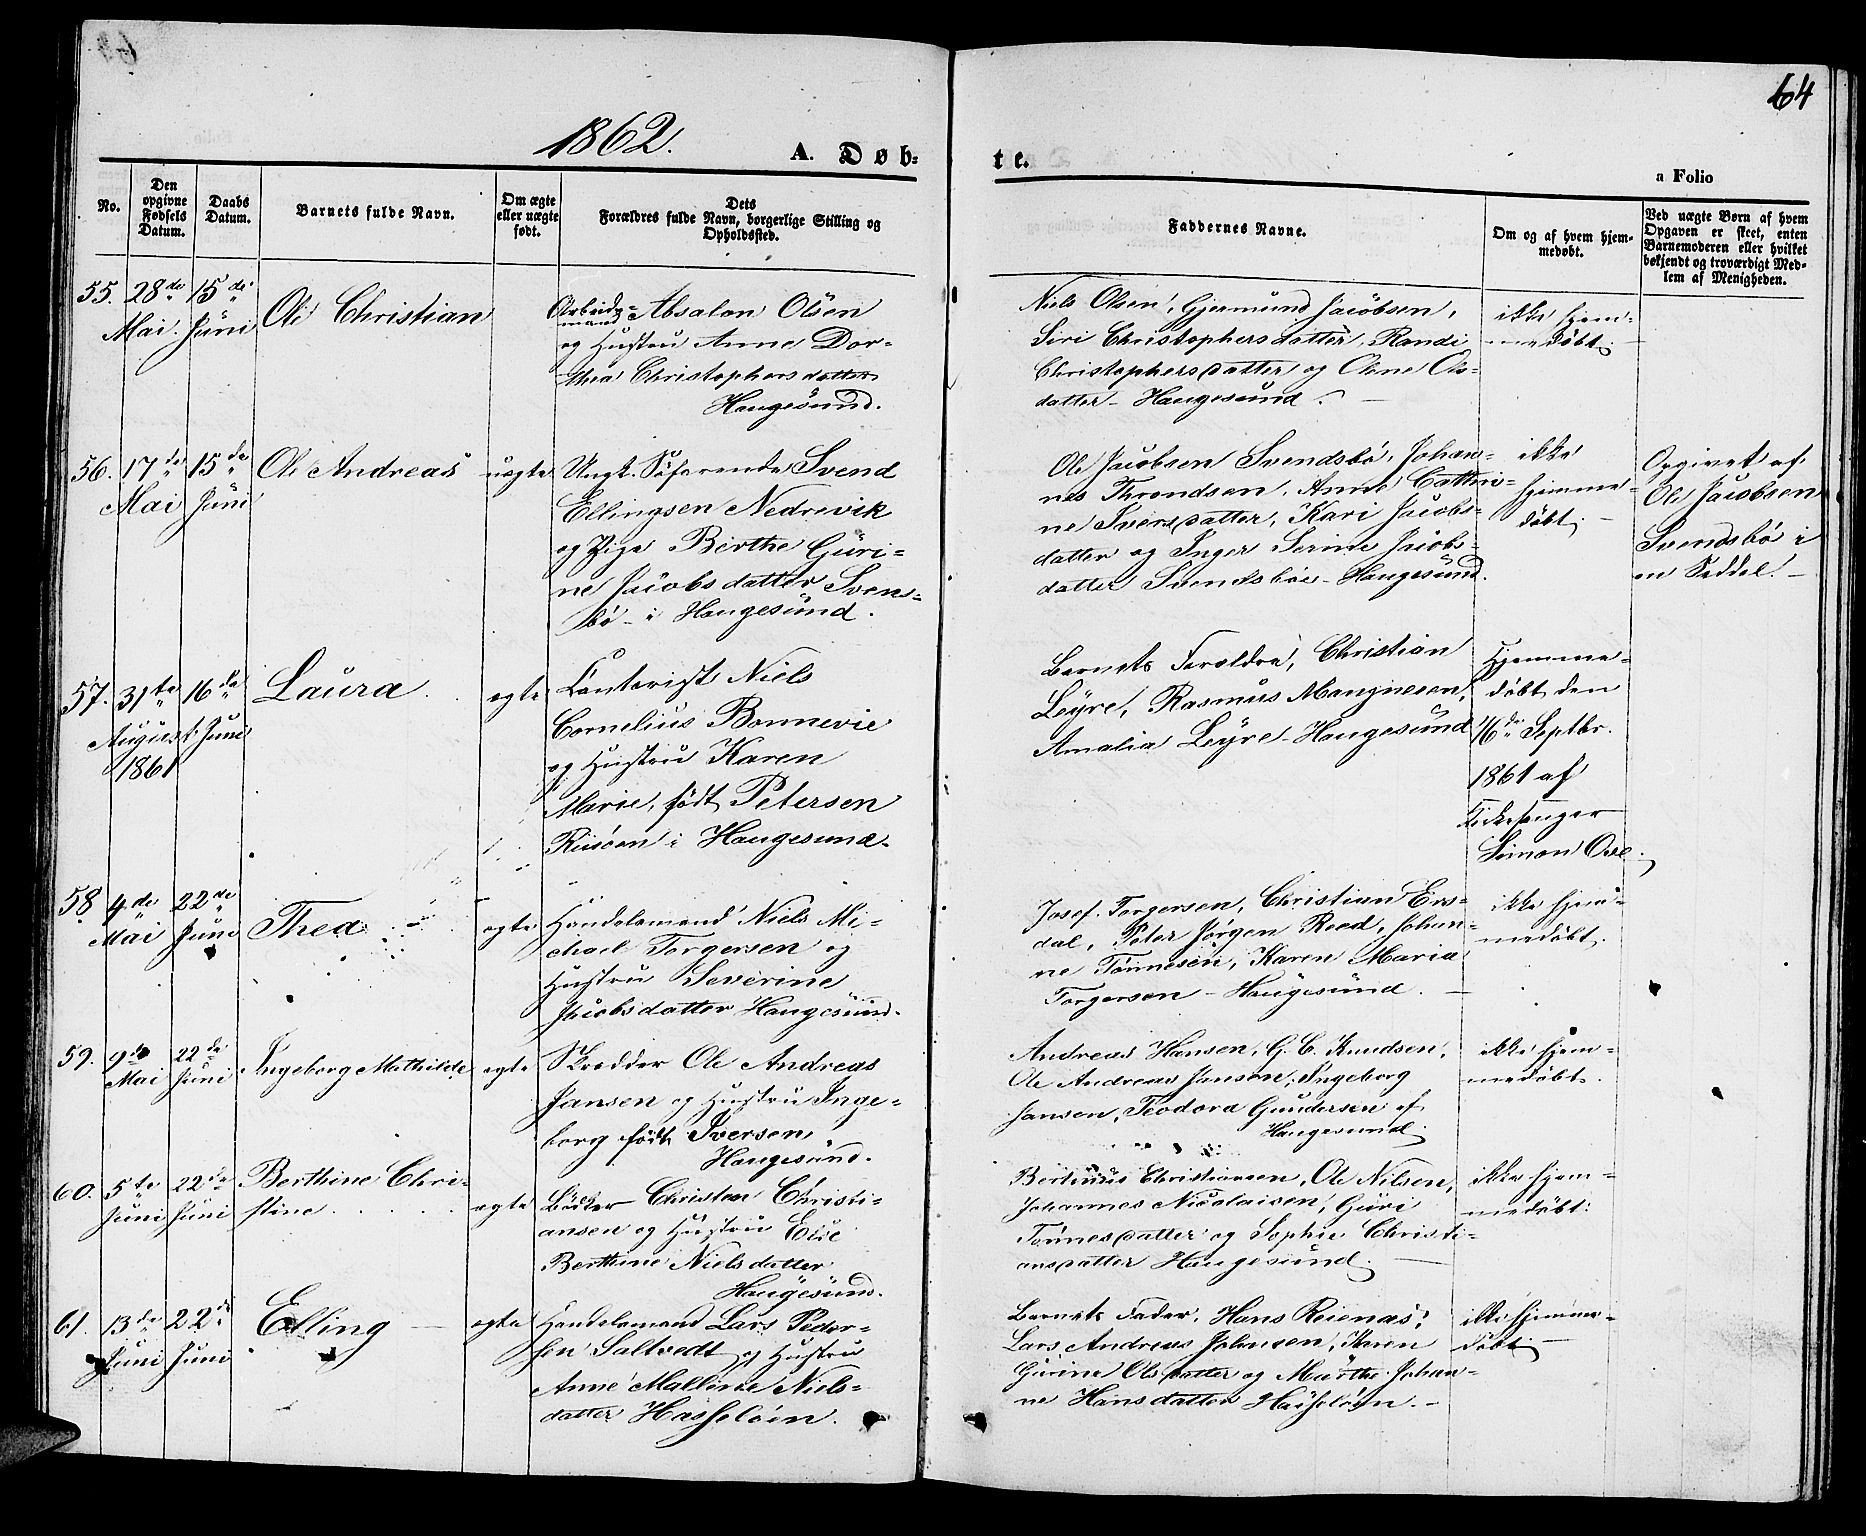 64
1862.
A. Døb=
te.
a Folio
No.
Den opgivne Fødsels Datum.
Daabs Datum.
Barnets fulde Navn.
Om ægte eller uægte født.
Dets Forældres fulde Navn, borgerlige Stilling og Opholdssted.
Faddernes Navne.
Om og af hvem hjem-
medøbt.
Ved uægte Børn af hvem
Opgaven er skeet, enten
Barnemoderen eller hvilket
bekjendt og troværdigt Med-
lem af Menigheden.
55. 28de Mai. 15de Juni
Ole Christian
Arbeids-
mand Absalon Olsen
og Hustru Anne Dor-
thea Christophersdatter
Haugesund.
Niels Olsen, Gjermund Jacobsen,
Siri Christophersdatter, Randi
Christophersdatter og Oline Ols-
datter - Haugesund.
ikke hjem-
medøbt.
56. 17de Mai 15de Juni
Ole Andreas
uægte
Ungk. Søfarende Svend
Ellingsen Nedrevik
og Pige Berthe Guri-
ne Jacobsdatter Svens-
bø - i Haugesund.
Ole Jacobsen Svendsbø, Johan-
nes Throndsen, Anne Cathri-
ne Iversdatter, Kari Jacobs-
datter og Inger Serine Jacobs-
datter Svendsbøe - Haugesund.
ikke
hjemme-
døbt.
Opgivet af
Ole Jacobsen
Svendsbø i
en Seddel.
57. 31te August 1861 16de Juni
Laura.
ægte
Contorist Niels
Cornelius Bonnevie
og Hustru Karen
Marie, født Petersen
Risøen i Haugesund.
Barnets Forældre, Christian
Leyre, Rasmus Mangnesen,
Amalia Leyre - Haugesund
Hjemme-
døbt den
16de Septbr.
1861 af
Kirkesanger
Simon Ove.
58 4de Mai 22de Juni
Thea
ægte
Handelsmand Niels Mi-
chael Torgersen og
Hustru Severine
Jacobsdatter Haugesund.
Josef Torgersen, Christian Ers-
dal, Peter Jørgen Roed, Johan-
ne Tønnesen, Karen Maria
Torgersen - Haugesund.
ikke hjem-
medøbt.
59. 9de Mai 22de Juni
Ingeborg Mathilde
ægte
Skrædder Ole Andreas
Jansen og Hustru Inge-
borg født Iversen,
Haugesund.
Andreas Hansen, G. C. Knudsen,
Ole Andreas Jansen, Ingeborg
Jansen, Teodora Gundersen af
Haugesund.
ikke hjem-
medøbt.
60. 5te Juni 22de Juni
Berthine Chri-
stine
ægte
Christen Christi-
ansen og Hustru Else
Berthine Nielsdatter
Haugesund.
Bertinus Christiansen, Ole Nilsen,
Johannes Nicolaisen, Guri
Tønnesdatter og Sophie Christi-
ansdatter Haugesund.
ikke hjem-
medøbt.
61. 13de Juni 22de Juni
Elling
ægte
Handelsmand Lars Peder-
sen Saltvedt og Hustru
Anne Malline Niels-
datter Hasseløin.
Barnets Fader, Hans Reienæs,
Lars Andreas Johnsen, Karen
Gurine Olsdatter og Marthe Johan-
ne Hansdatter Hasseløin.
ikke hjemme-
døbt.